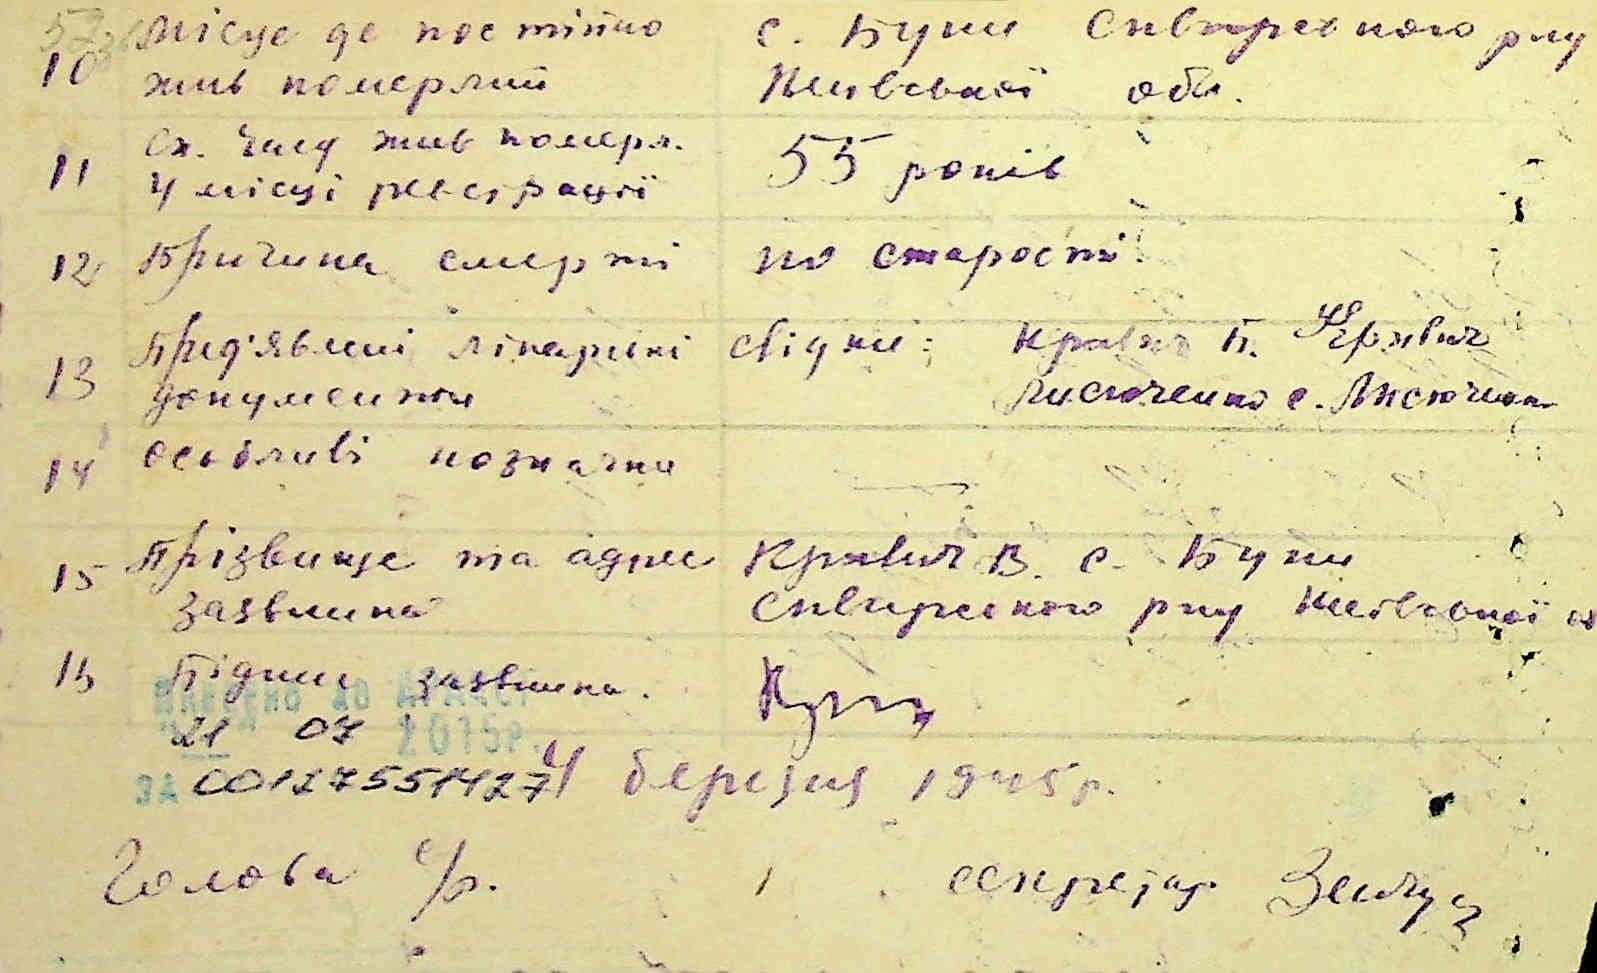 10 Місце де постійно с. Буки Сквирського р-ну
жив померлий Київської обл.
11 Ск. часу жив помер.
у місці реєстрації 55 років
12 Причина смерті по старості.
13 Пред'явлені лікарські свідки: Кравч Б.
документи Лисюченко с.
14 особливі позначки —
15 Прізвище та адрес Кравч В. с. Буки
заявника Сквирського р-ну Київської о
Підпис заявника.
ВНЕСЕНО ДО
21 07 2015р.
ЗА 00127551427
4 березня 1945 р.
Голова с/р. секретар